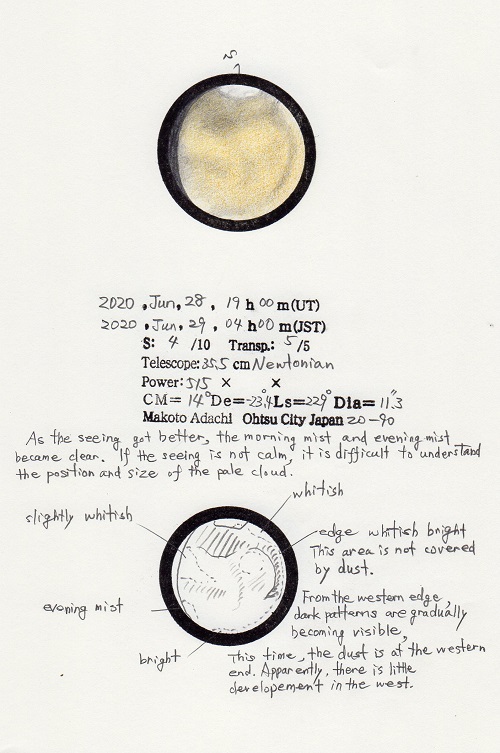 S
2020, Jun, 28, 19 h 00 m (UT)
2020, Jun, 29, 04 h 00 m (JST)
S: 4 /10 Transp.: 5/5
Telescope: 35.5 cm Newtonian
Power: 515 × ×
CM= 14° De=-23.4° Ls=229° Dia= 11."3
Makoto Adachi Ohtsu City Japan 20-90
As the seeing got better, the morning mist and evening mist
became clear. If the seeing is not calm, it is difficult to understand
the position and size of the pale cloud.
whitish
slightly whitish
edge whitish bright
This area is not covered
by dust.
evening mist
From the western edge,
dark patterns are gradually
becoming visible,
bright
This time, the dust is at the western
end. Apparently, there is little
developement in the west.